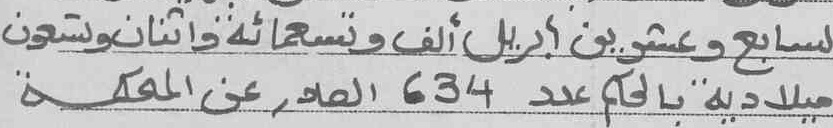 لسابع وعشرين أبريل ألف وتسعمائة واثنان وتسعون
ميلادية" بالحكم عدد 634 الصادر عن المحكمة